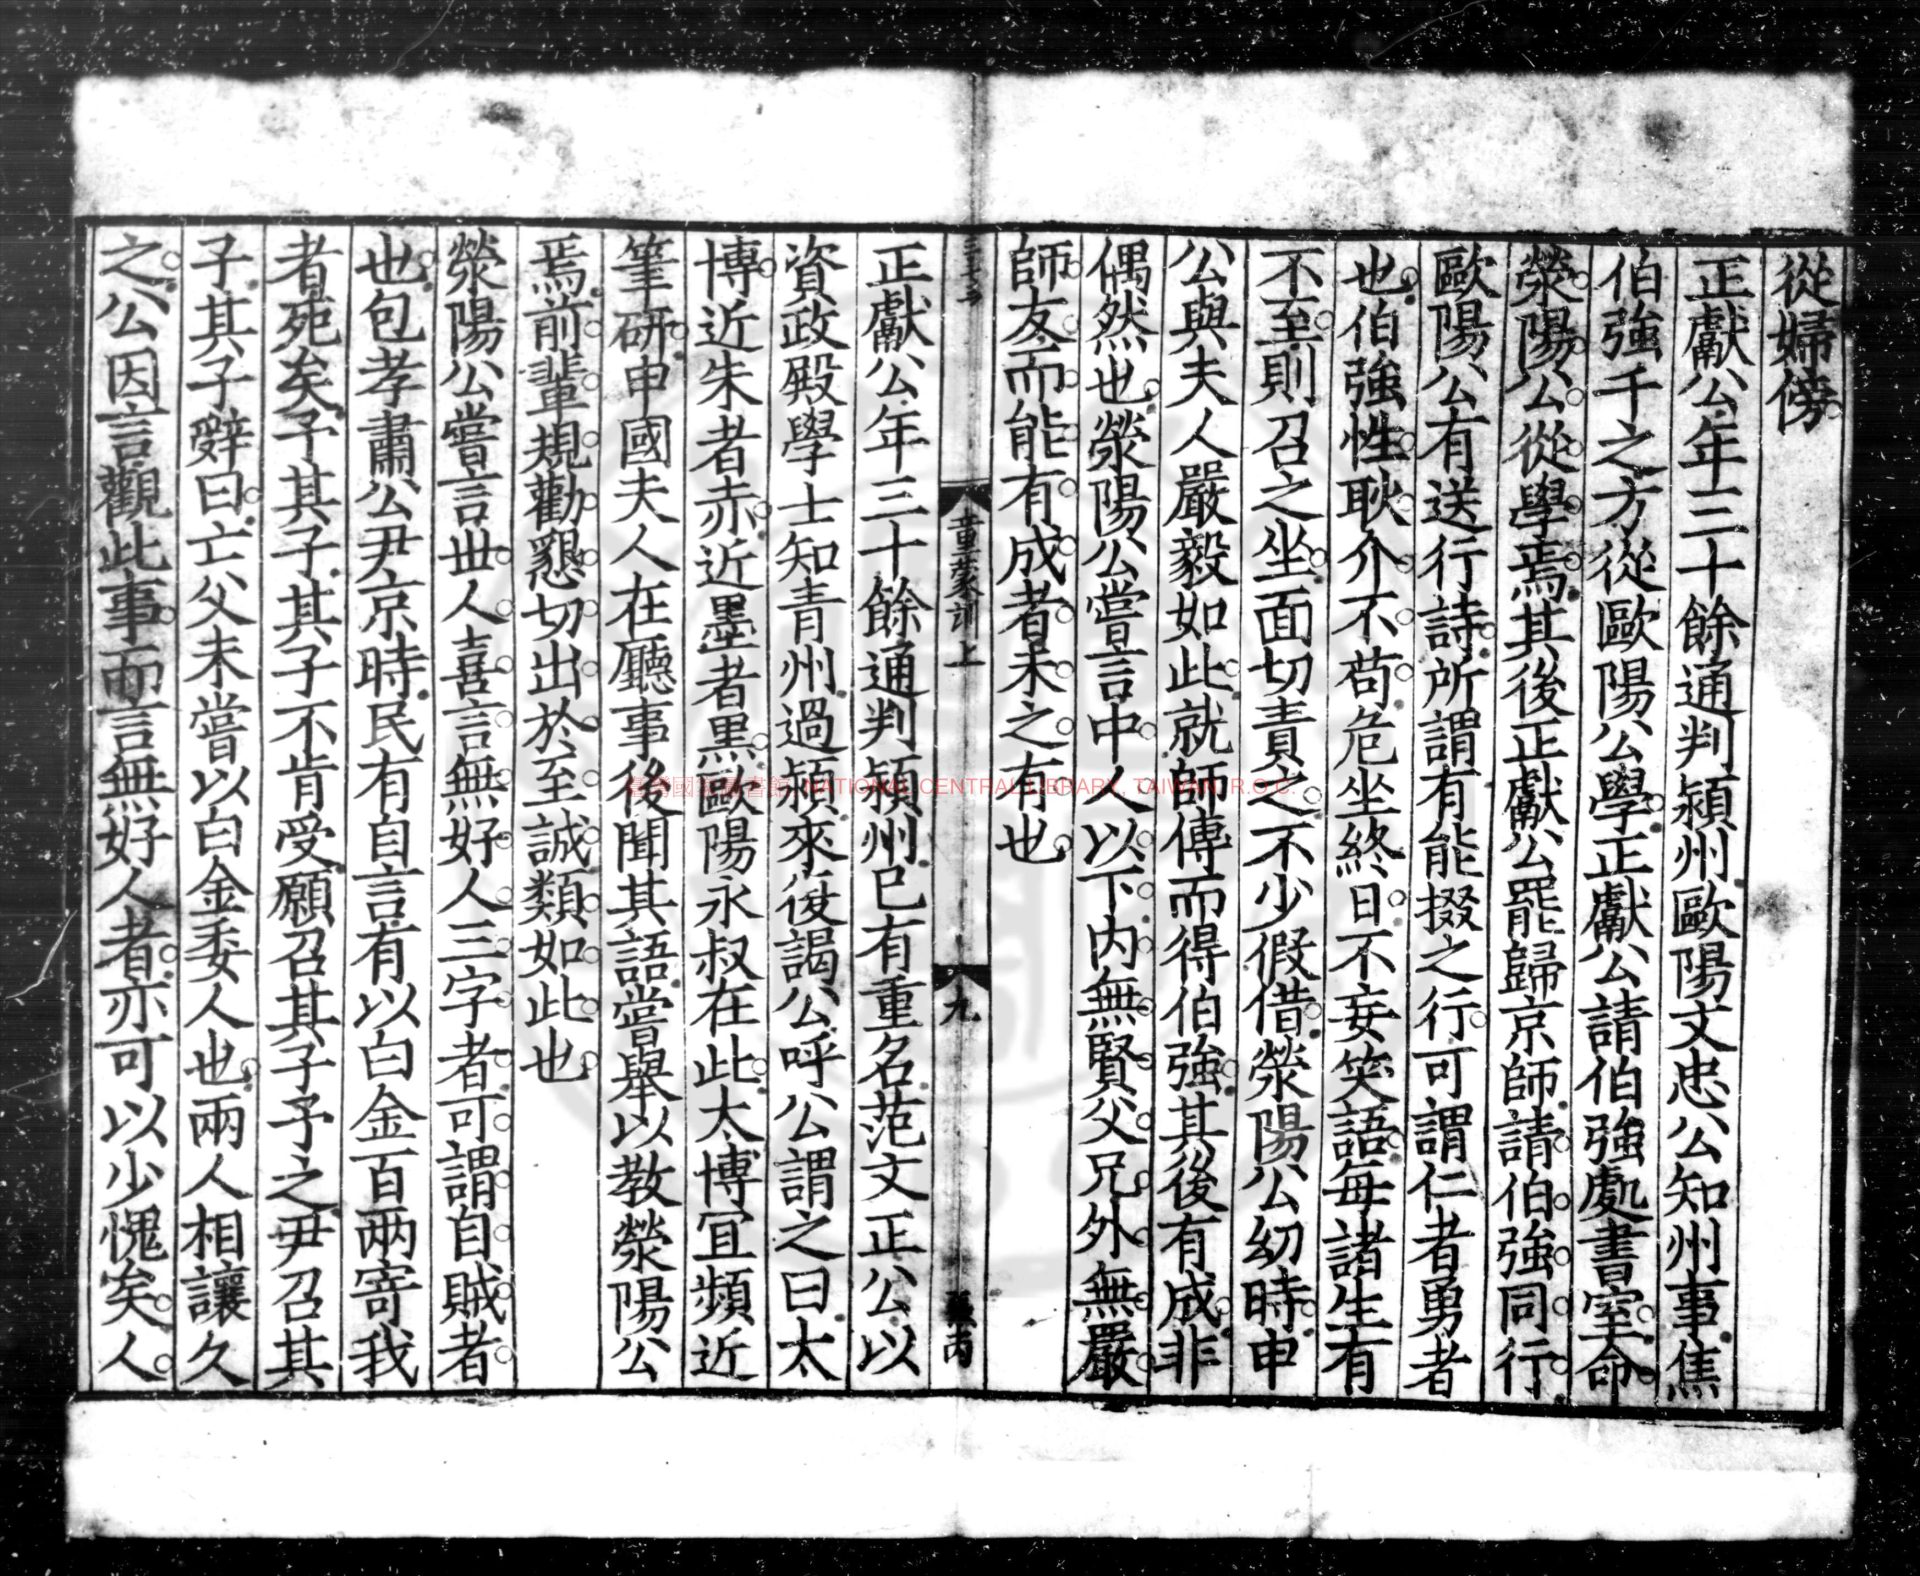 從婦傍
正獻公年三十餘通判潁州歐陽文忠公知州事焦
伯強千之方從歐陽公學正獻公請伯強處書室命
滎陽公從學焉其後正獻公罷歸京師請伯強同行
歐陽公有送行詩所謂有能掇之行可謂仁者勇者
也伯強性耿介不苟危坐終日不妄笑語每諸生有
不至則召之坐面切責之不少假借滎陽公幼時申
公與夫人嚴毅如此就師傅而得伯強其後有成非
偶然也滎陽公嘗言中人以下內無賢父兄外無嚴
師友而能有成者未之有也
童蒙訓上
九
正獻公年三十餘通判潁州已有重名范文正公以
資政殿學士知青州過潁來復謁公呼公謂之曰太
博近朱者赤近墨者黑歐陽永叔在此太博宜頻近
筆研申國夫人在廳事後聞其語嘗舉以教滎陽公
焉前輩規勸懇切出於至誠類如此也
滎陽公嘗言世人喜言無好人三字者可謂自賊者
也包孝肅公尹京時民有自言有以白金百兩寄我
者死矣予其子其子不肯受願召其子予之尹召其
子其子辭曰亡父未嘗以白金委人也兩人相讓久
之公因言觀此事而言無好人者亦可以少愧矣人
臺灣國家圖書館 NATIONAL CENTRAL LIBRARY, TAIWAN, R.O.C.